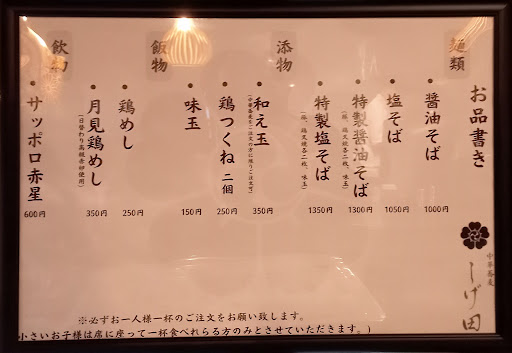 お品書き
麺類
醤油そば
1000円
塩そば
1050円
特製醤油そば
1300円
特製塩そば
1350円
添物
和え玉
350円
鶏つくね 二個
250円
味玉
150円
飯物
鶏めし
250円
月見鶏めし
(日替わり高級赤卵使用)
350円
飲物
サッポロ赤星
600円
中華蕎麦
しげ田
※必ずお一人様一杯のご注文をお願い致します。
小さいお子様は席に座って一杯食べれらる方のみとさせていただきます。)